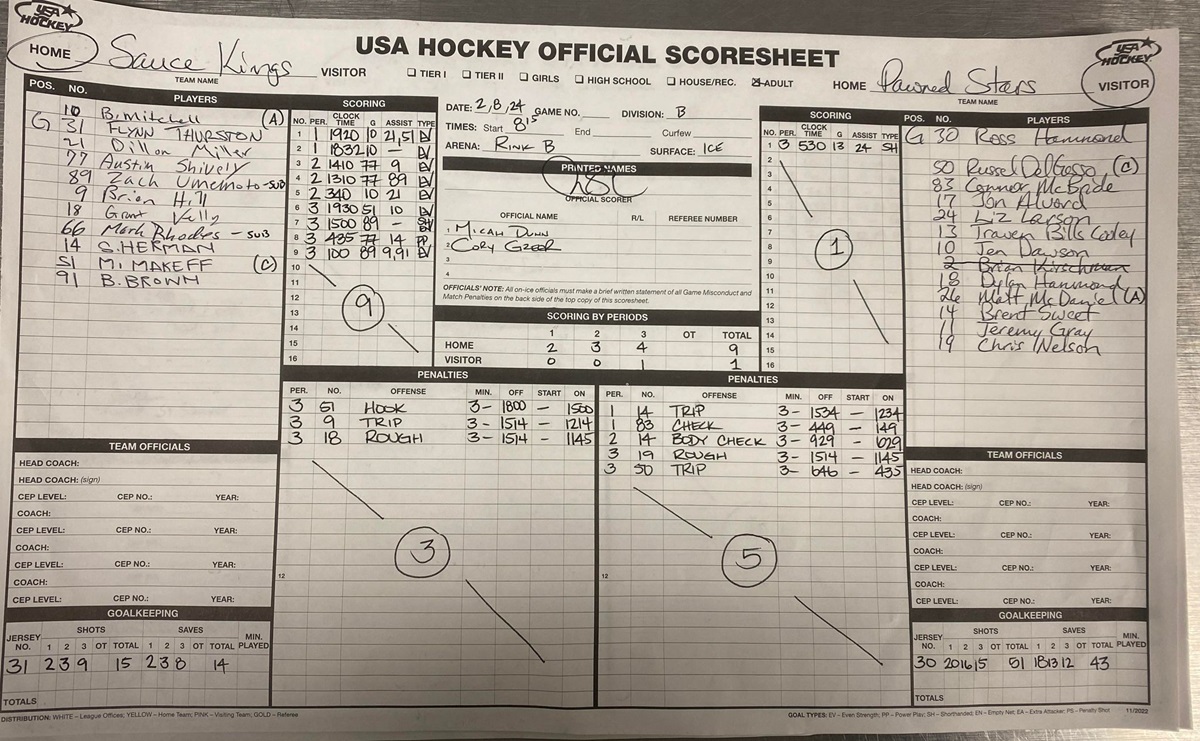 USA HOCKEY
USA HOCKEY OFFICIAL SCORESHEET
USA HOCKEY
HOME Sauce Kings VISITOR
TEAM NAME
☐ TIER I ☐ TIER II ☐ GIRLS ☐ HIGH SCHOOL ☐ HOUSE/REC. ☒ ADULT
HOME Pawned Stars VISITOR
TEAM NAME
POS. NO. PLAYERS
10 B. Mitchell (A)
G 31 FLYNN THURSTON
21 Dillon Miller
77 Austin Shively
89 Zach Umemoto - SUB
9 Brian Hill
18 Grant Kelly
66 Mark Rhodes - SUB
14 S. HERMAN
51 M. MAKEFF (C)
91 B. BROWN
SCORING
NO. PER. CLOCK TIME G ASSIST TYPE
1 1 1920 10 21,51 EV
2 1 1832 10 — EV
3 2 1410 77 9 EV
4 2 1310 77 89 EV
5 2 340 10 21 EV
6 3 1930 51 10 EV
7 3 1500 89 - SH
8 3 435 77 14 PP
9 3 100 89 9,91 EV
10
11
12
13
14
15
16
9
DATE: 2,8,24 GAME NO. DIVISION: B
TIMES: Start 8:15 End Curfew
ARENA: RINK B SURFACE: ICE
PRINTED NAMES
OFFICIAL SCORER
OFFICIAL NAME R/L REFEREE NUMBER
1 MICAH DUNN
2 CORY GREER
3
4
OFFICIALS' NOTE: All on-ice officials must make a brief written statement of all Game Misconduct and
Match Penalties on the back side of the top copy of this scoresheet.
SCORING BY PERIODS
1 2 3 OT TOTAL
HOME 2 3 4 9
VISITOR 0 0 1 1
SCORING
NO. PER. CLOCK TIME G ASSIST TYPE
1 3 530 13 24 SH
2
3
4
5
6
7
8
9
10
11
12
13
14
15
16
1
POS. NO. PLAYERS
G 30 Ross Hammond
50 Russel DalGasso (C)
83 Connor McBride
17 Jon Alvord
24 Liz Larson
13 Traven Bills Cooley
10 Jen Dawson
2 Brian Kirschman
18 Dylan Hammond
26 Matt McDaniel (A)
14 Brent Sweet
11 Jeremy Gray
19 Chris Nelson
PENALTIES
PER. NO. OFFENSE MIN. OFF START ON
3 51 HOOK 3- 1800 - 1500
3 9 TRIP 3- 1514 - 1214
3 18 ROUGH 3- 1514 - 1145
12
3
PENALTIES
PER. NO. OFFENSE MIN. OFF START ON
1 14 TRIP 3- 1534 - 1234
1 83 CHECK 3- 449 - 149
2 14 BODY CHECK 3- 929 - 629
3 19 ROUGH 3- 1514 - 1145
3 50 TRIP 3- 646 - 435
12
5
TEAM OFFICIALS
HEAD COACH:
HEAD COACH: (sign)
CEP LEVEL: CEP NO.: YEAR:
COACH:
CEP LEVEL: CEP NO.: YEAR:
COACH:
CEP LEVEL: CEP NO.: YEAR:
COACH:
CEP LEVEL: CEP NO.: YEAR:
GOALKEEPING
JERSEY NO. SHOTS 1 2 3 OT TOTAL SAVES 1 2 3 OT TOTAL MIN. PLAYED
31 2 3 9 15 2 3 8 14
TOTALS
TEAM OFFICIALS
HEAD COACH:
HEAD COACH: (sign)
CEP LEVEL: CEP NO.: YEAR:
COACH:
CEP LEVEL: CEP NO.: YEAR:
COACH:
CEP LEVEL: CEP NO.: YEAR:
COACH:
CEP LEVEL: CEP NO.: YEAR:
GOALKEEPING
JERSEY NO. SHOTS 1 2 3 OT TOTAL SAVES 1 2 3 OT TOTAL MIN. PLAYED
30 20 16 15 51 18 13 12 43
TOTALS
DISTRIBUTION: WHITE – League Offices; YELLOW – Home Team; PINK – Visiting Team, GOLD – Referee
GOAL TYPES: EV – Even Strength; PP – Power Play; SH – Shorthanded; EN – Empty Net; EA – Extra Attacker; PS – Penalty Shot 11/2022